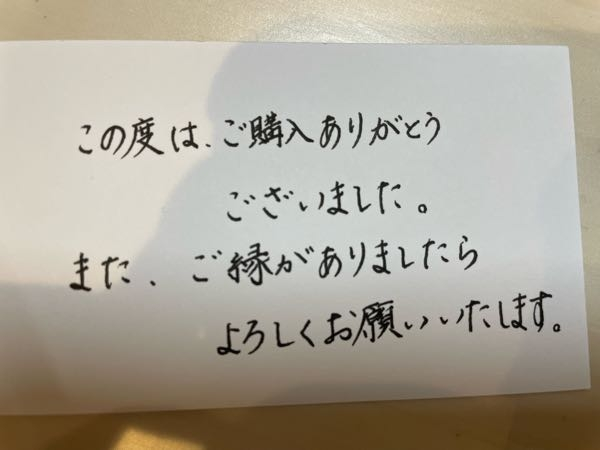 この度は、ご購入ありがとう
ございました。
また、ご縁がありましたら
よろしくお願いいたします。